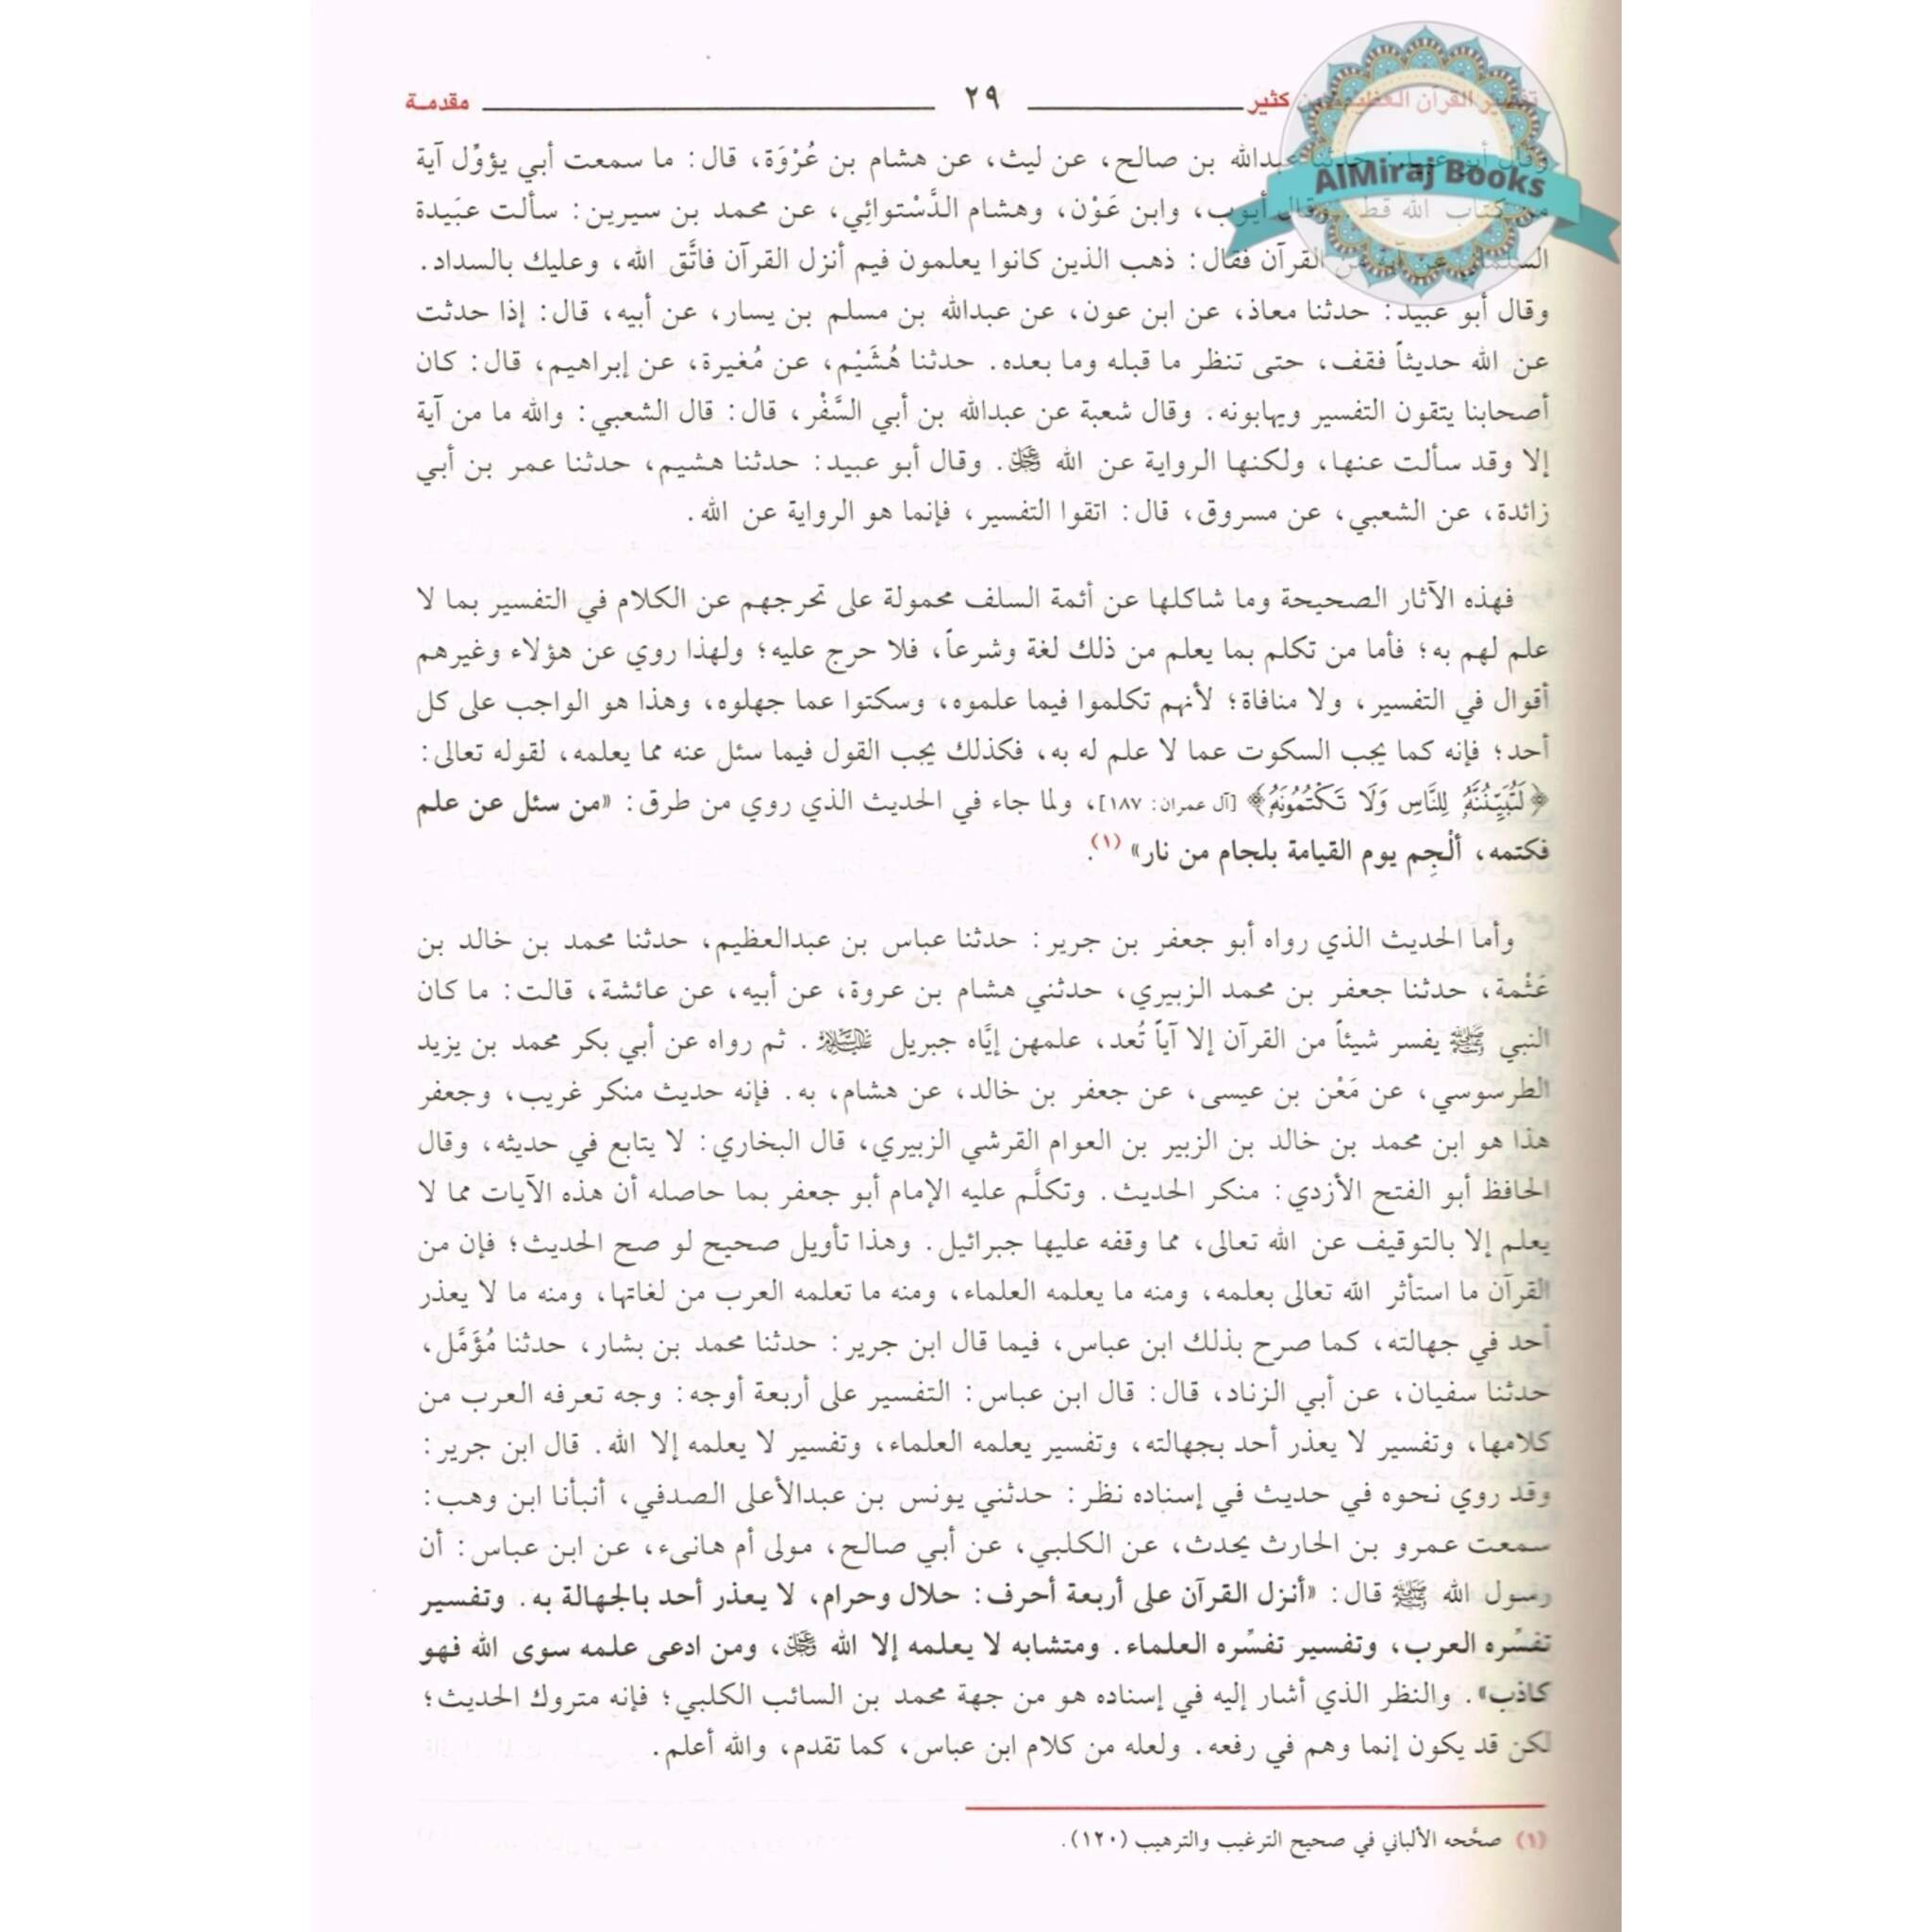 تفسير القرآن العظيم لابن كثير ٢٩ مقدمـة
AlMiraj Books
وقال أبو عبيد: حدثنا عبدالله بن صالح، عن ليث، عن هشام بن عُرْوَة، قال: ما سمعت أبي يؤوِّل آية
من كتاب الله قط. وقال أيوب، وابن عَوْن، وهشام الدَّسْتوائِي، عن محمد بن سيرين: سألت عبَيدة
السلماني عن آية من القرآن فقال: ذهب الذين كانوا يعلمون فيم أنزل القرآن فاتَّق الله، وعليك بالسداد.
وقال أبو عبيد: حدثنا معاذ، عن ابن عون، عن عبدالله بن مسلم بن يسار، عن أبيه، قال: إذا حدثت
عن الله حديثاً فقف، حتى تنظر ما قبله وما بعده. حدثنا هُشَيْم، عن مُغيرة، عن إبراهيم، قال: كان
أصحابنا يتقون التفسير ويهابونه. وقال شعبة عن عبدالله بن أبي السَّفْر، قال: قال الشعبي: والله ما من آية
إلا وقد سألت عنها، ولكنها الرواية عن الله عز وجل. وقال أبو عبيد: حدثنا هشيم، حدثنا عمر بن أبي
زائدة، عن الشعبي، عن مسروق، قال: اتقوا التفسير، فإنما هو الرواية عن الله.
فهذه الآثار الصحيحة وما شاكلها عن أئمة السلف محمولة على تحرجهم عن الكلام في التفسير بما لا
علم لهم به؛ فأما من تكلم بما يعلم من ذلك لغة وشرعاً، فلا حرج عليه؛ ولهذا روي عن هؤلاء وغيرهم
أقوال في التفسير، ولا منافاة؛ لأنهم تكلموا فيما علموه، وسكتوا عما جهلوه، وهذا هو الواجب على كل
أحد؛ فإنه كما يجب السكوت عما لا علم له به، فكذلك يجب القول فيما سئل عنه مما يعلمه، لقوله تعالى:
﴿لَتُبَيِّنُنَّهُ لِلنَّاسِ وَلَا تَكْتُمُونَهُ﴾ [آل عمران: ١٨٧]، ولما جاء في الحديث الذي روي من طرق: «من سئل عن علم
فكتمه، ألْجِم يوم القيامة بلجام من نار» (١).
وأما الحديث الذي رواه أبو جعفر بن جرير: حدثنا عباس بن عبدالعظيم، حدثنا محمد بن خالد بن
عَثْمة، حدثنا جعفر بن محمد الزبيري، حدثني هشام بن عروة، عن أبيه، عن عائشة، قالت: ما كان
النبي ﷺ يفسر شيئاً من القرآن إلا آياً تُعد، علمهن إيَّاه جبريل عليه السلام. ثم رواه عن أبي بكر محمد بن يزيد
الطرسوسي، عن مَعْن بن عيسى، عن جعفر بن خالد، عن هشام، به. فإنه حديث منكر غريب، وجعفر
هذا هو ابن محمد بن خالد بن الزبير بن العوام القرشي الزبيري، قال البخاري: لا يتابع في حديثه، وقال
الحافظ أبو الفتح الأزدي: منكر الحديث. وتكلَّم عليه الإمام أبو جعفر بما حاصله أن هذه الآيات مما لا
يعلم إلا بالتوقيف عن الله تعالى، مما وقفه عليها جبرائيل. وهذا تأويل صحيح لو صح الحديث؛ فإن من
القرآن ما استأثر الله تعالى بعلمه، ومنه ما يعلمه العلماء، ومنه ما تعلمه العرب من لغاتها، ومنه ما لا يعذر
أحد في جهالته، كما صرح بذلك ابن عباس، فيما قال ابن جرير: حدثنا محمد بن بشار، حدثنا مُؤَمَّل،
حدثنا سفيان، عن أبي الزناد، قال: قال ابن عباس: التفسير على أربعة أوجه: وجه تعرفه العرب من
كلامها، وتفسير لا يعذر أحد بجهالته، وتفسير يعلمه العلماء، وتفسير لا يعلمه إلا الله. قال ابن جرير:
وقد روي نحوه في حديث في إسناده نظر: حدثني يونس بن عبدالأعلى الصدفي، أنبأنا ابن وهب:
سمعت عمرو بن الحارث يحدث، عن الكلبي، عن أبي صالح، مولى أم هانىء، عن ابن عباس: أن
رسول الله ﷺ قال: «أنزل القرآن على أربعة أحرف: حلال وحرام، لا يعذر أحد بالجهالة به. وتفسير
تفسِّره العرب، وتفسير تفسِّره العلماء. ومتشابه لا يعلمه إلا الله عز وجل، ومن ادعى علمه سوى الله فهو
كاذب». والنظر الذي أشار إليه في إسناده هو من جهة محمد بن السائب الكلبي؛ فإنه متروك الحديث؛
لكن قد يكون إنما وهم في رفعه. ولعله من كلام ابن عباس، كما تقدم، والله أعلم.
(١) صحَّحه الألباني في صحيح الترغيب والترهيب (١٢٠).